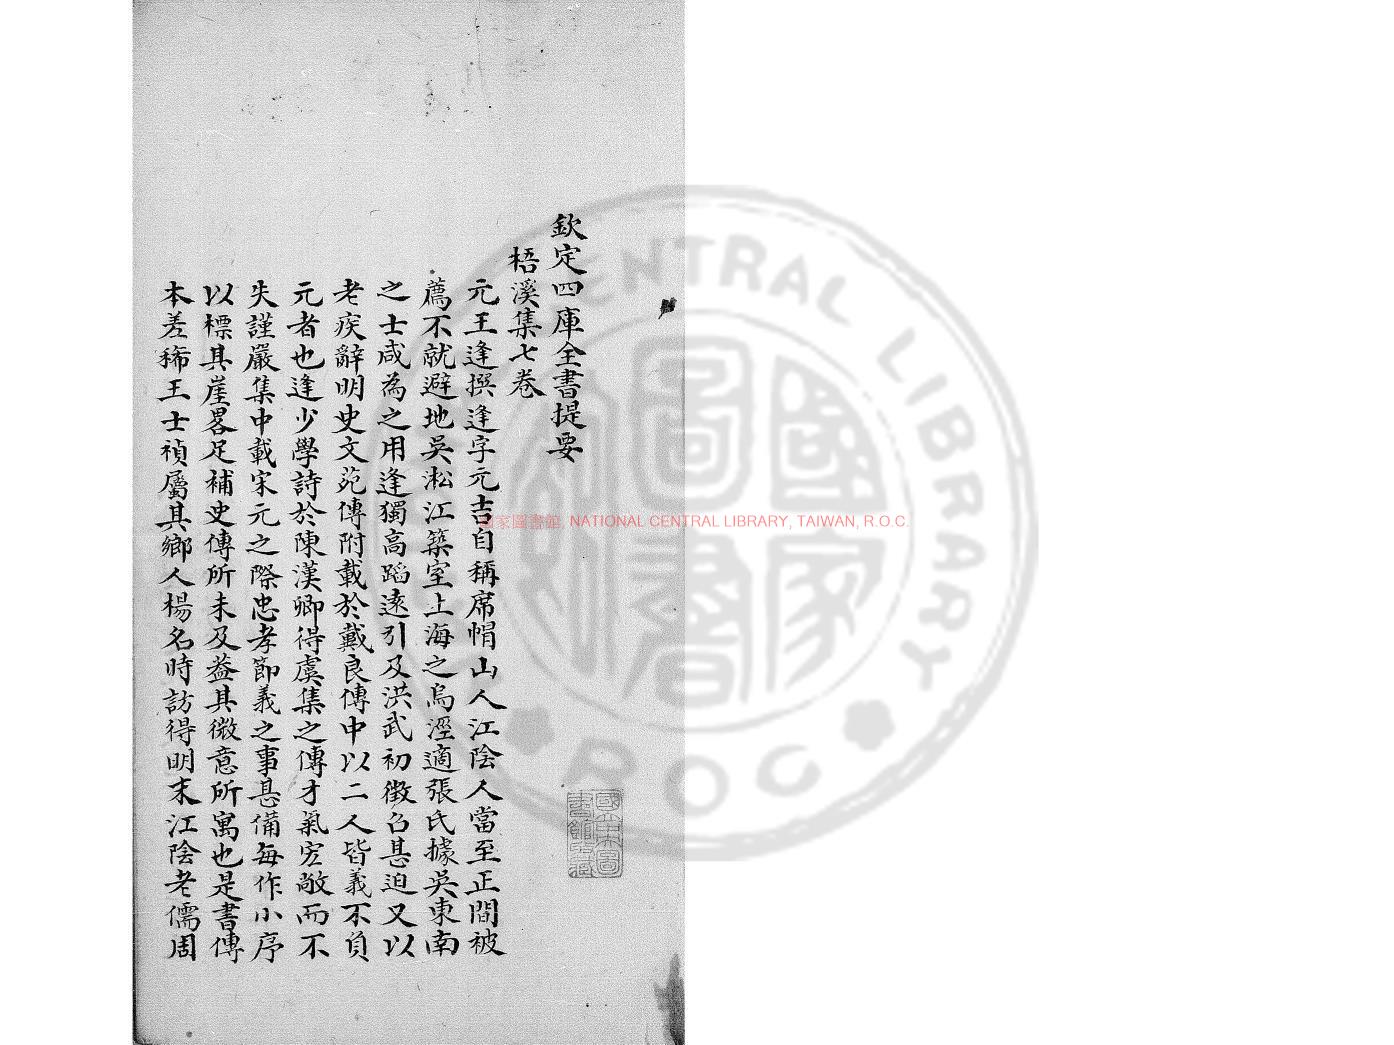 欽定四庫全書提要
梧溪集七卷
元王逢撰逢字元吉自稱席帽山人江陰人當至正間被
薦不就避地吳淞江築室上海之烏涇適張氏據吳東南
之士咸為之用逢獨高蹈遠引及洪武初徵召甚迫又以
老疾辭明史文苑傳附載於戴良傳中以二人皆義不負
元者也逢少學詩於陳漢卿得虞集之傳才氣宏敞而不
失謹嚴集中載宋元之際忠孝節義之事甚備每作小序
以標其崖畧足補史傳所未及葢其微意所寓也是書傳
本差稀王士禎屬其鄉人楊名時訪得明末江陰老儒周
國家圖書館, NATIONAL CENTRAL LIBRARY, TAIWAN, R.O.C.
CENTRAL LIBRARY
ROC
國家圖書
國立中央圖書館收藏